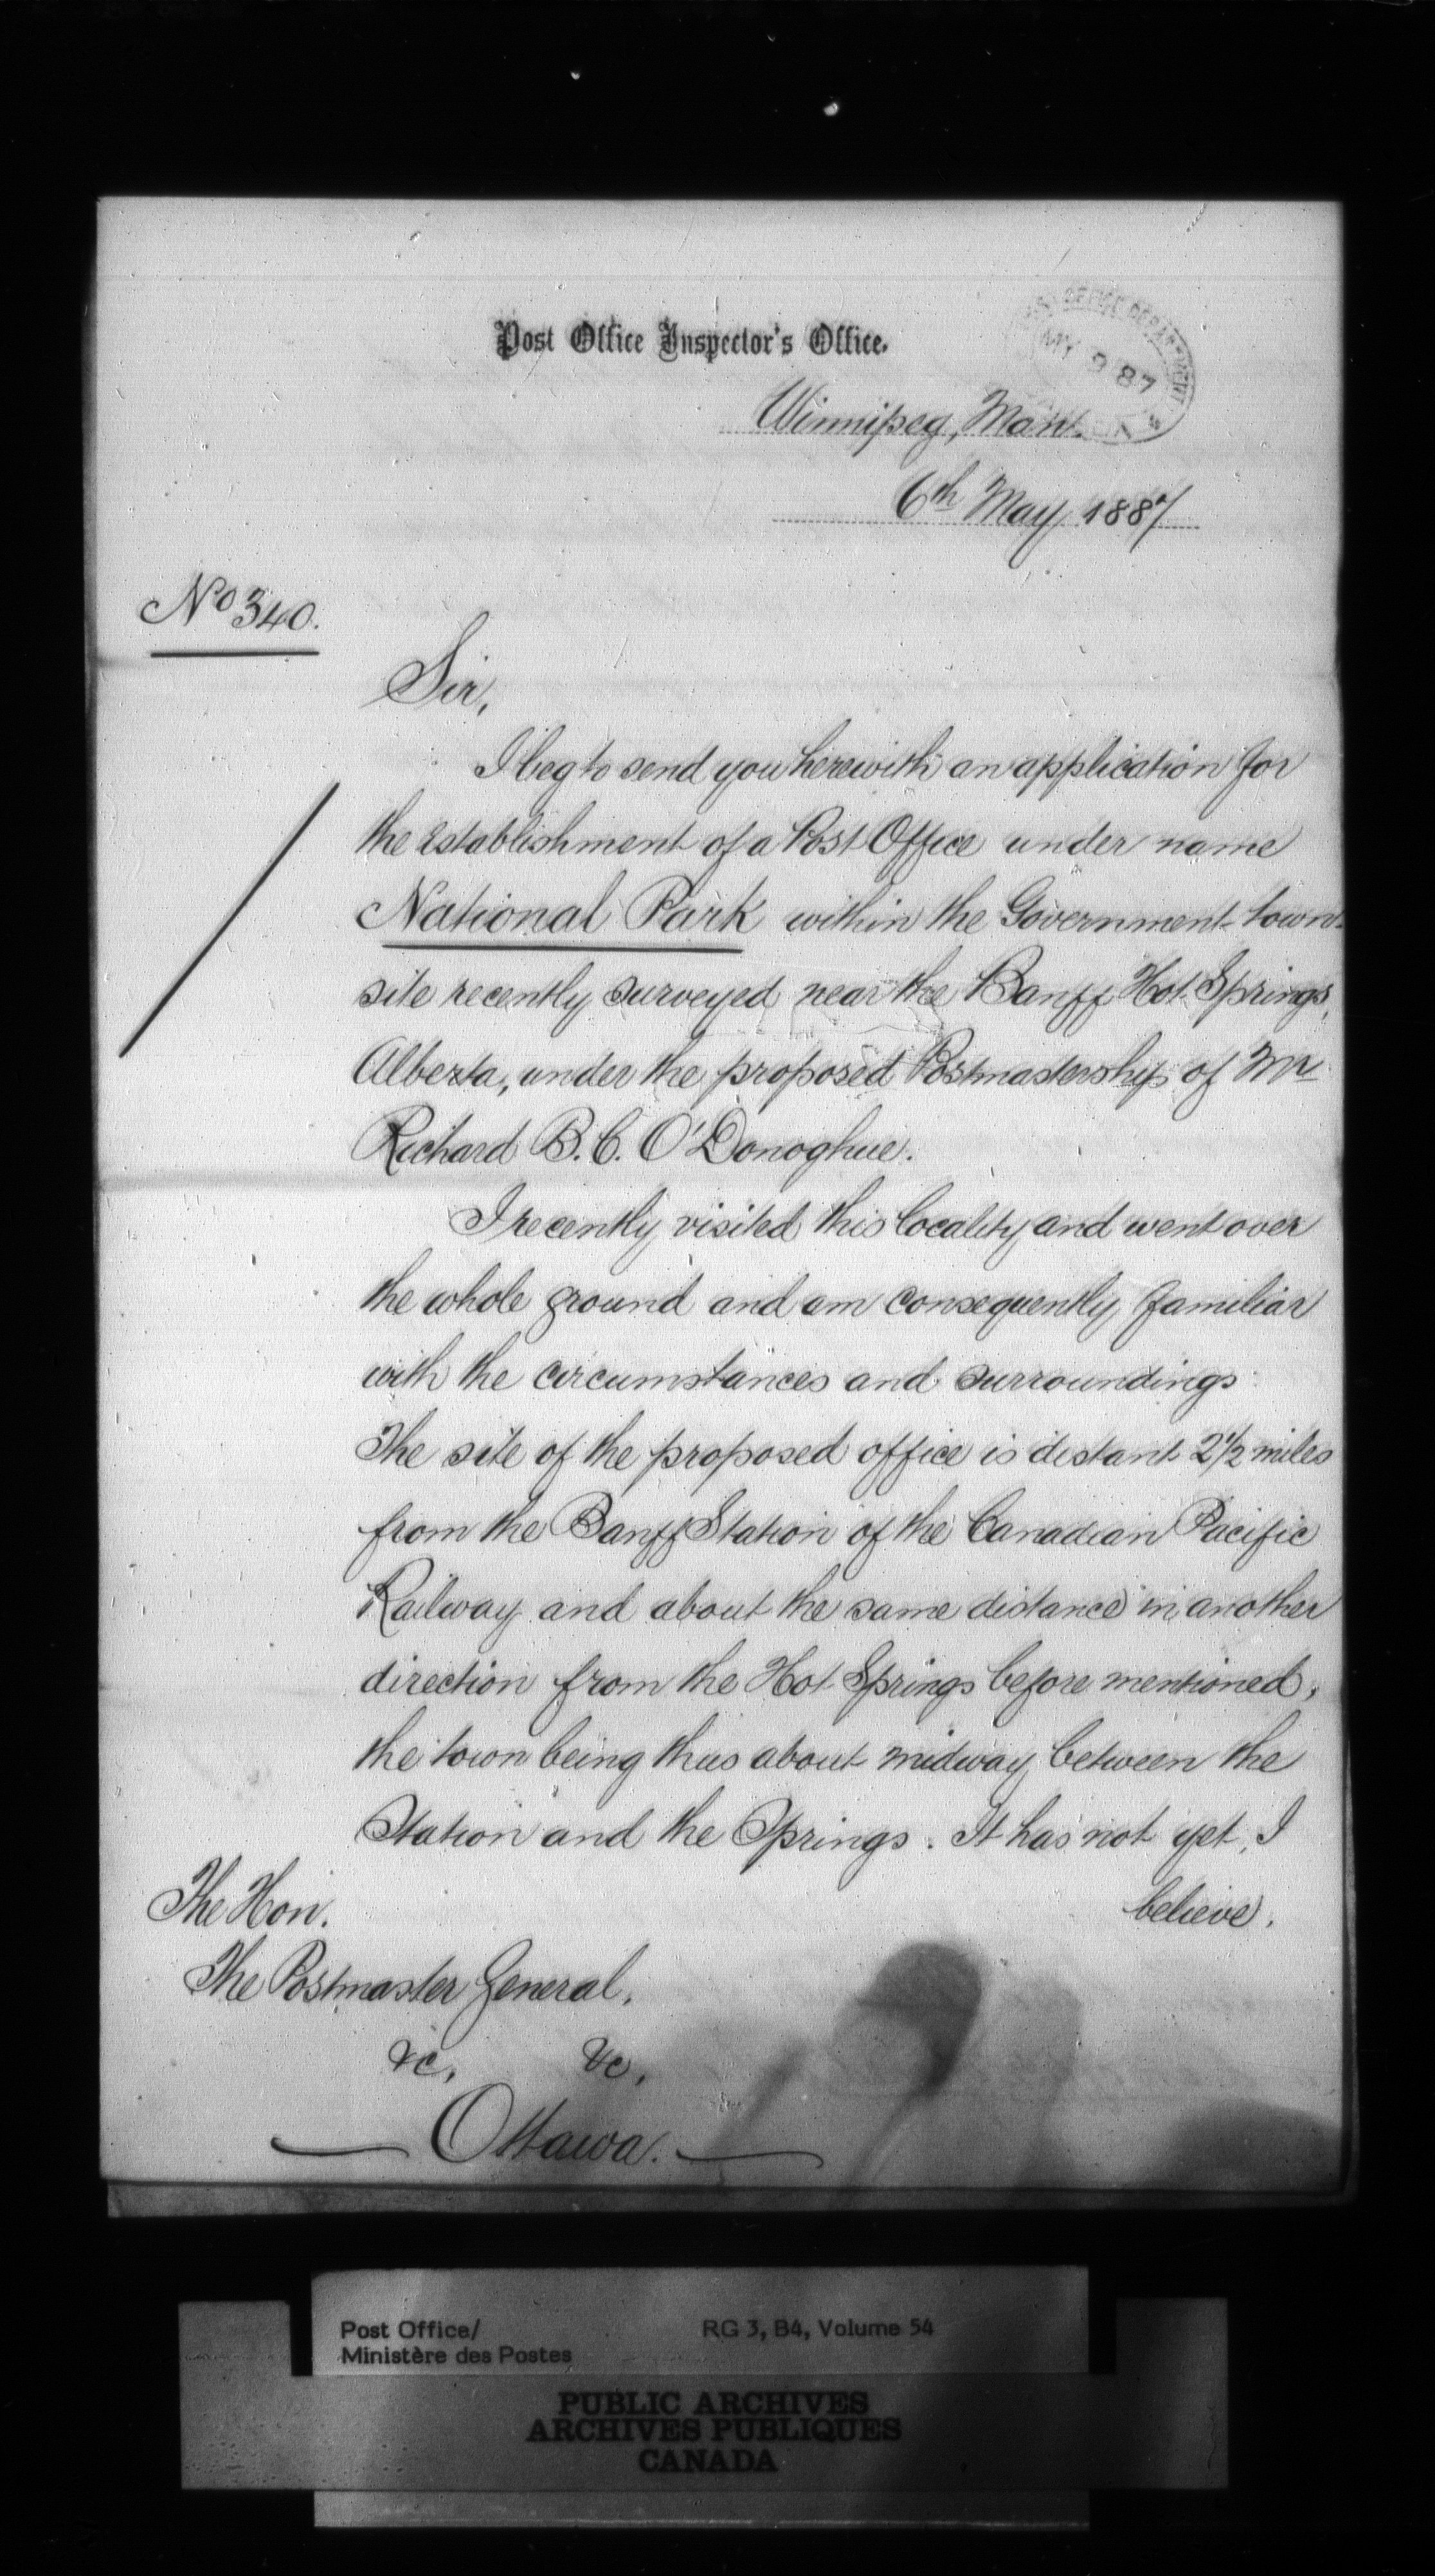 Post Office Inspector's Office.
POST OFFICE DEPARTMENT
MY 9 87
Winnipeg, Man.
6th May 1887
No 340.
Sir,
I beg to send you herewith an application for
the establishment of a Post Office under name
National Park within the Government town-
site recently surveyed near the Banff Hot Springs,
Alberta, under the proposed Postmastership of Mr
Richard B. C. O'Donoghue.
I recently visited this locality and went over
the whole ground and am consequently familiar
with the circumstances and surroundings
The site of the proposed office is distant 2 1/2 miles
from the Banff Station of the Canadian Pacific
Railway and about the same distance in another
direction from the Hot Springs before mentioned,
the town being thus about midway between the
Station and the Springs. It has not yet, I
believe,
The Hon.
The Postmaster General,
&c, &c,
Ottawa.
Post Office/ RG 3, B4, Volume 54
Ministère des Postes
PUBLIC ARCHIVES
ARCHIVES PUBLIQUES
CANADA